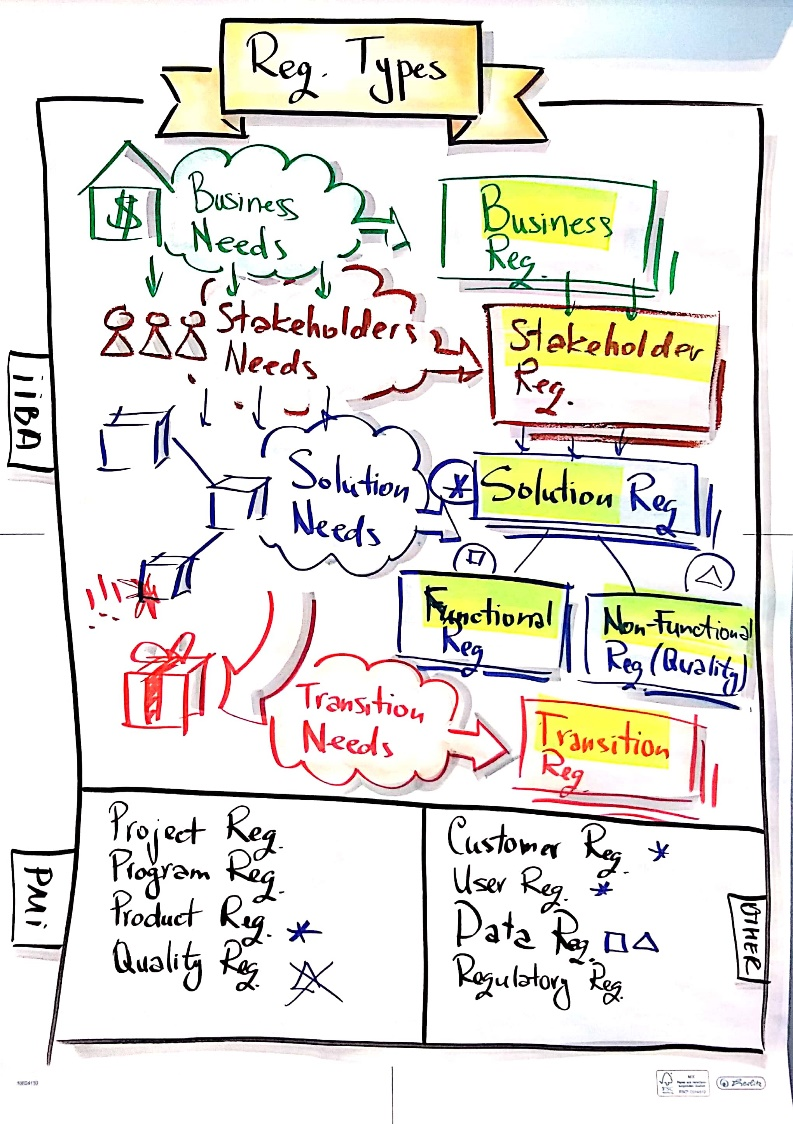 Req. Types
$
Business
Needs
Business
Req.
Stakeholders
Needs
Stakeholder
Req.
iiBA
Solution
Needs
*
Solution Req
Functional
Req
Non-Functional
Req (Quality)
!!!
Transition
Needs
Transition
Req.
PMi
Project Req.
Program Req.
Product Req. *
Quality Req.
OTHER
Customer Req. *
User Req. *
Data Req. □△
Regulatory Req.
FSC
MIX